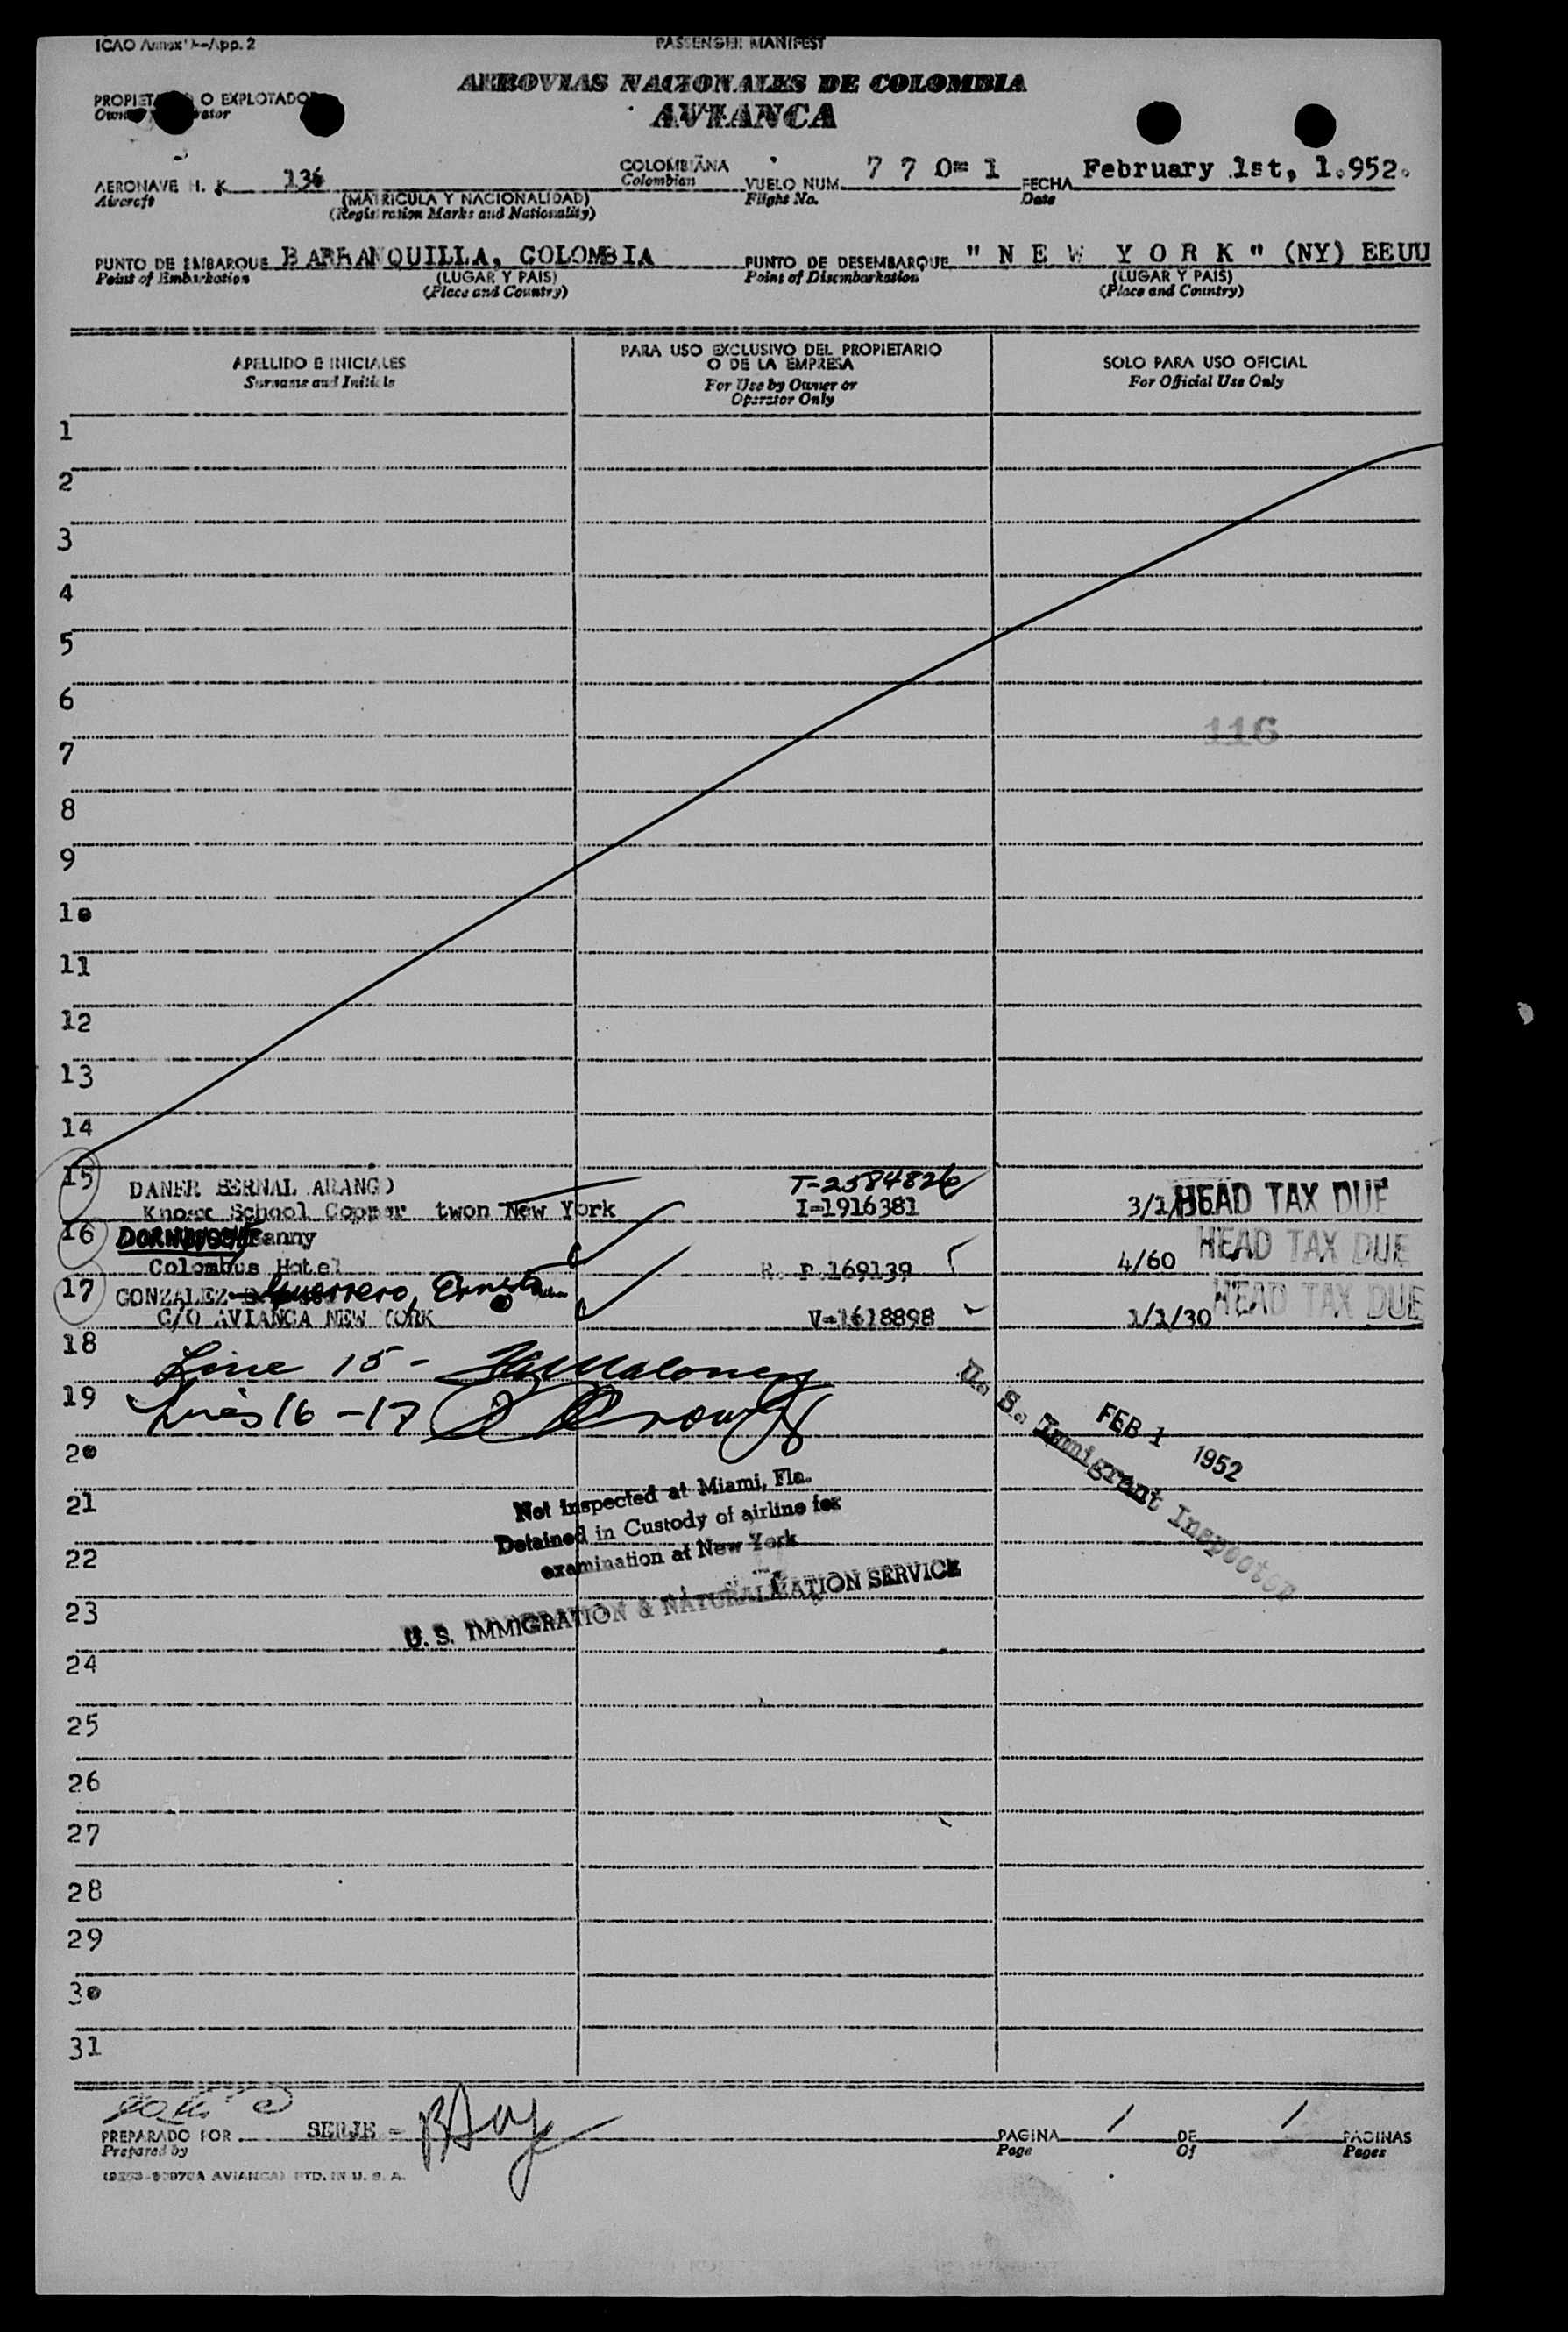 ICAO Annex 9-App. 2
PASSENGER MANIFEST
AEROVIAS NACIONALES DE COLOMBIA
AVIANCA
PROPIETARIO O EXPLOTADOR
AERONAVE H. K 136 COLOMBIANA VUELO NUM. 7 7 0= 1 FECHA February 1st, 1.952.
Aircraft Colombian Flight No. Date
(MATRICULA Y NACIONALIDAD)
(Registration Marks and Nationality)
PUNTO DE EMBARQUE BARRANQUILLA, COLOMBIA PUNTO DE DESEMBARQUE " N E W Y O R K " (NY) EEUU
Point of Embarkation (LUGAR Y PAIS) Point of Disembarkation (LUGAR Y PAIS)
(Place and Country) (Place and Country)
APELLIDO E INICIALES
Surname and Initials
PARA USO EXCLUSIVO DEL PROPIETARIO
O DE LA EMPRESA
For Use by Owner or
Operator Only
SOLO PARA USO OFICIAL
For Official Use Only
1
2
3
4
5
6
116
7
8
9
10
11
12
13
14
15 DANER BERNAL ARANGO T-2584826 HEAD TAX DUE
Knoxx School Cooper twon New York I=1916381 3/1/
16 Fanny HEAD TAX DUE
Colombus Hotel R. P 169139 4/60
17 GONZALEZ Guerrero, Ernesto HEAD TAX DUE
C/O AVIANCA NEW YORK V=1618898 1/1/30
18 Line 15 - Maloney
19 Lines 16 - 17
20
21
22
23
U. S. Immigrant Inspector
FEB 1 1952
Not inspected at Miami, Fla.
Detained in Custody of airline for
examination at New York
U. S. IMMIGRATION & NATURALIZATION SERVICE
24
25
26
27
28
29
30
31
PREPARADO POR PAGINA 1 DE 1 PAGINAS
Prepared by Page Of Pages
AVIANCA) PTD. IN U. S. A.